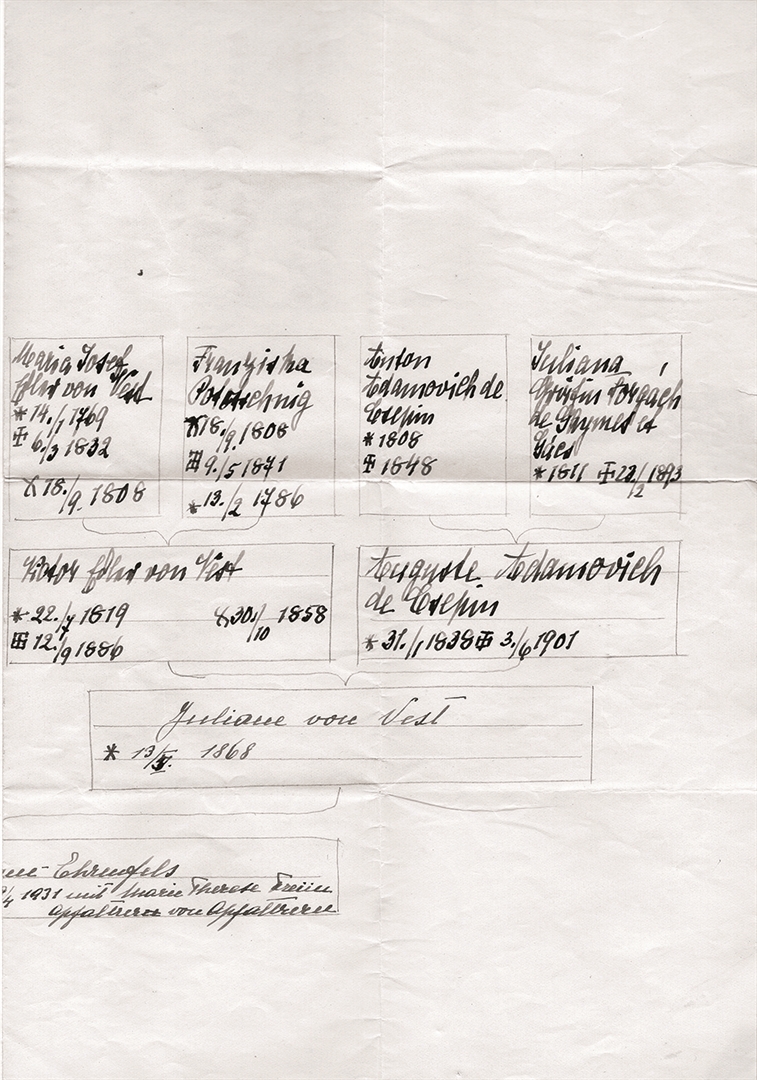 Maria Josef
Edler von Vest
* 14./1 1769
✠ 6./3 1832
X 18./9. 1808
Franziska
Pototschnig
X 18./9. 1808
✠ 9./5 1871
* 13./2 1786
Anton
Adamovich de
Csepin
* 1808
✠ 1848
Juliana
Gräfin Forgách
de Ghymes et
Gács
* 1811 ✠ 23./2 1893
Viktor Edler von Vest
* 22./7 1819 X 30./10 1858
✠ 12./9 1886
Auguste Adamovich
de Csepin
* 31./1 1838 ✠ 3./6 1901
Juliane von Vest
* 13/ 1868
Ehrenfels
/4 1931 mit Marie Therese Freiin
Apfaltrern von Apfaltrern